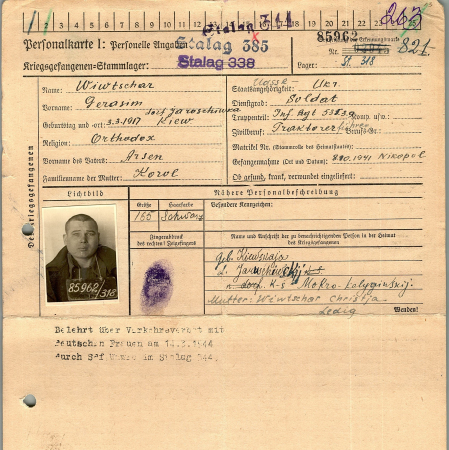 1 2 3 4 5 6 7 8 9 10 11 12 13 14 15 16 17 18 19 20 21 22 23 24 25
263
Stalag 344
Personalkarte I: Personelle Angaben
Stalag 385
85962
Kriegsgefangenen-Stammlager:
Stalag 338
Nr.
Erkennungsmarke
821.
Lager: St. 318
Des Kriegsgefangenen
Name: Wiwtschar
Vorname: Gerasim
Geburtstag und -ort: 3.3.1917 Kiew
Religion: Orthodox
Vorname des Vaters: Arsen
Familienname der Mutter: Korol
Staatsangehörigkeit: Ukr.
Dienstgrad: Soldat
Truppenteil: Inf. Rgt Komp. usw.:
Zivilberuf: Berufs-Gr.:
Matrikel Nr. (Stammrolle des Heimatstaates):
Gefangennahme (Ort und Datum): 8.10.1941 Nikopol
Ob gesund, krank, verwundet eingeliefert:
Lichtbild
85962/318
Nähere Personalbeschreibung
Größe
Haarfarbe
165
Schwarz
Besondere Kennzeichen:
Fingerabdruck
des rechten! Zeigefingers
Name und Anschrift der zu benachrichtigenden Person in der Heimat
des Kriegsgefangenen
Geb. Kiewskaja
Mutter: Wiwtschar Christja
Ledig
Wenden!
Belehrt über Verkehrsverbot mit
deutschen Frauen am 14.3.1944
durch Gef. im Stalag 344.